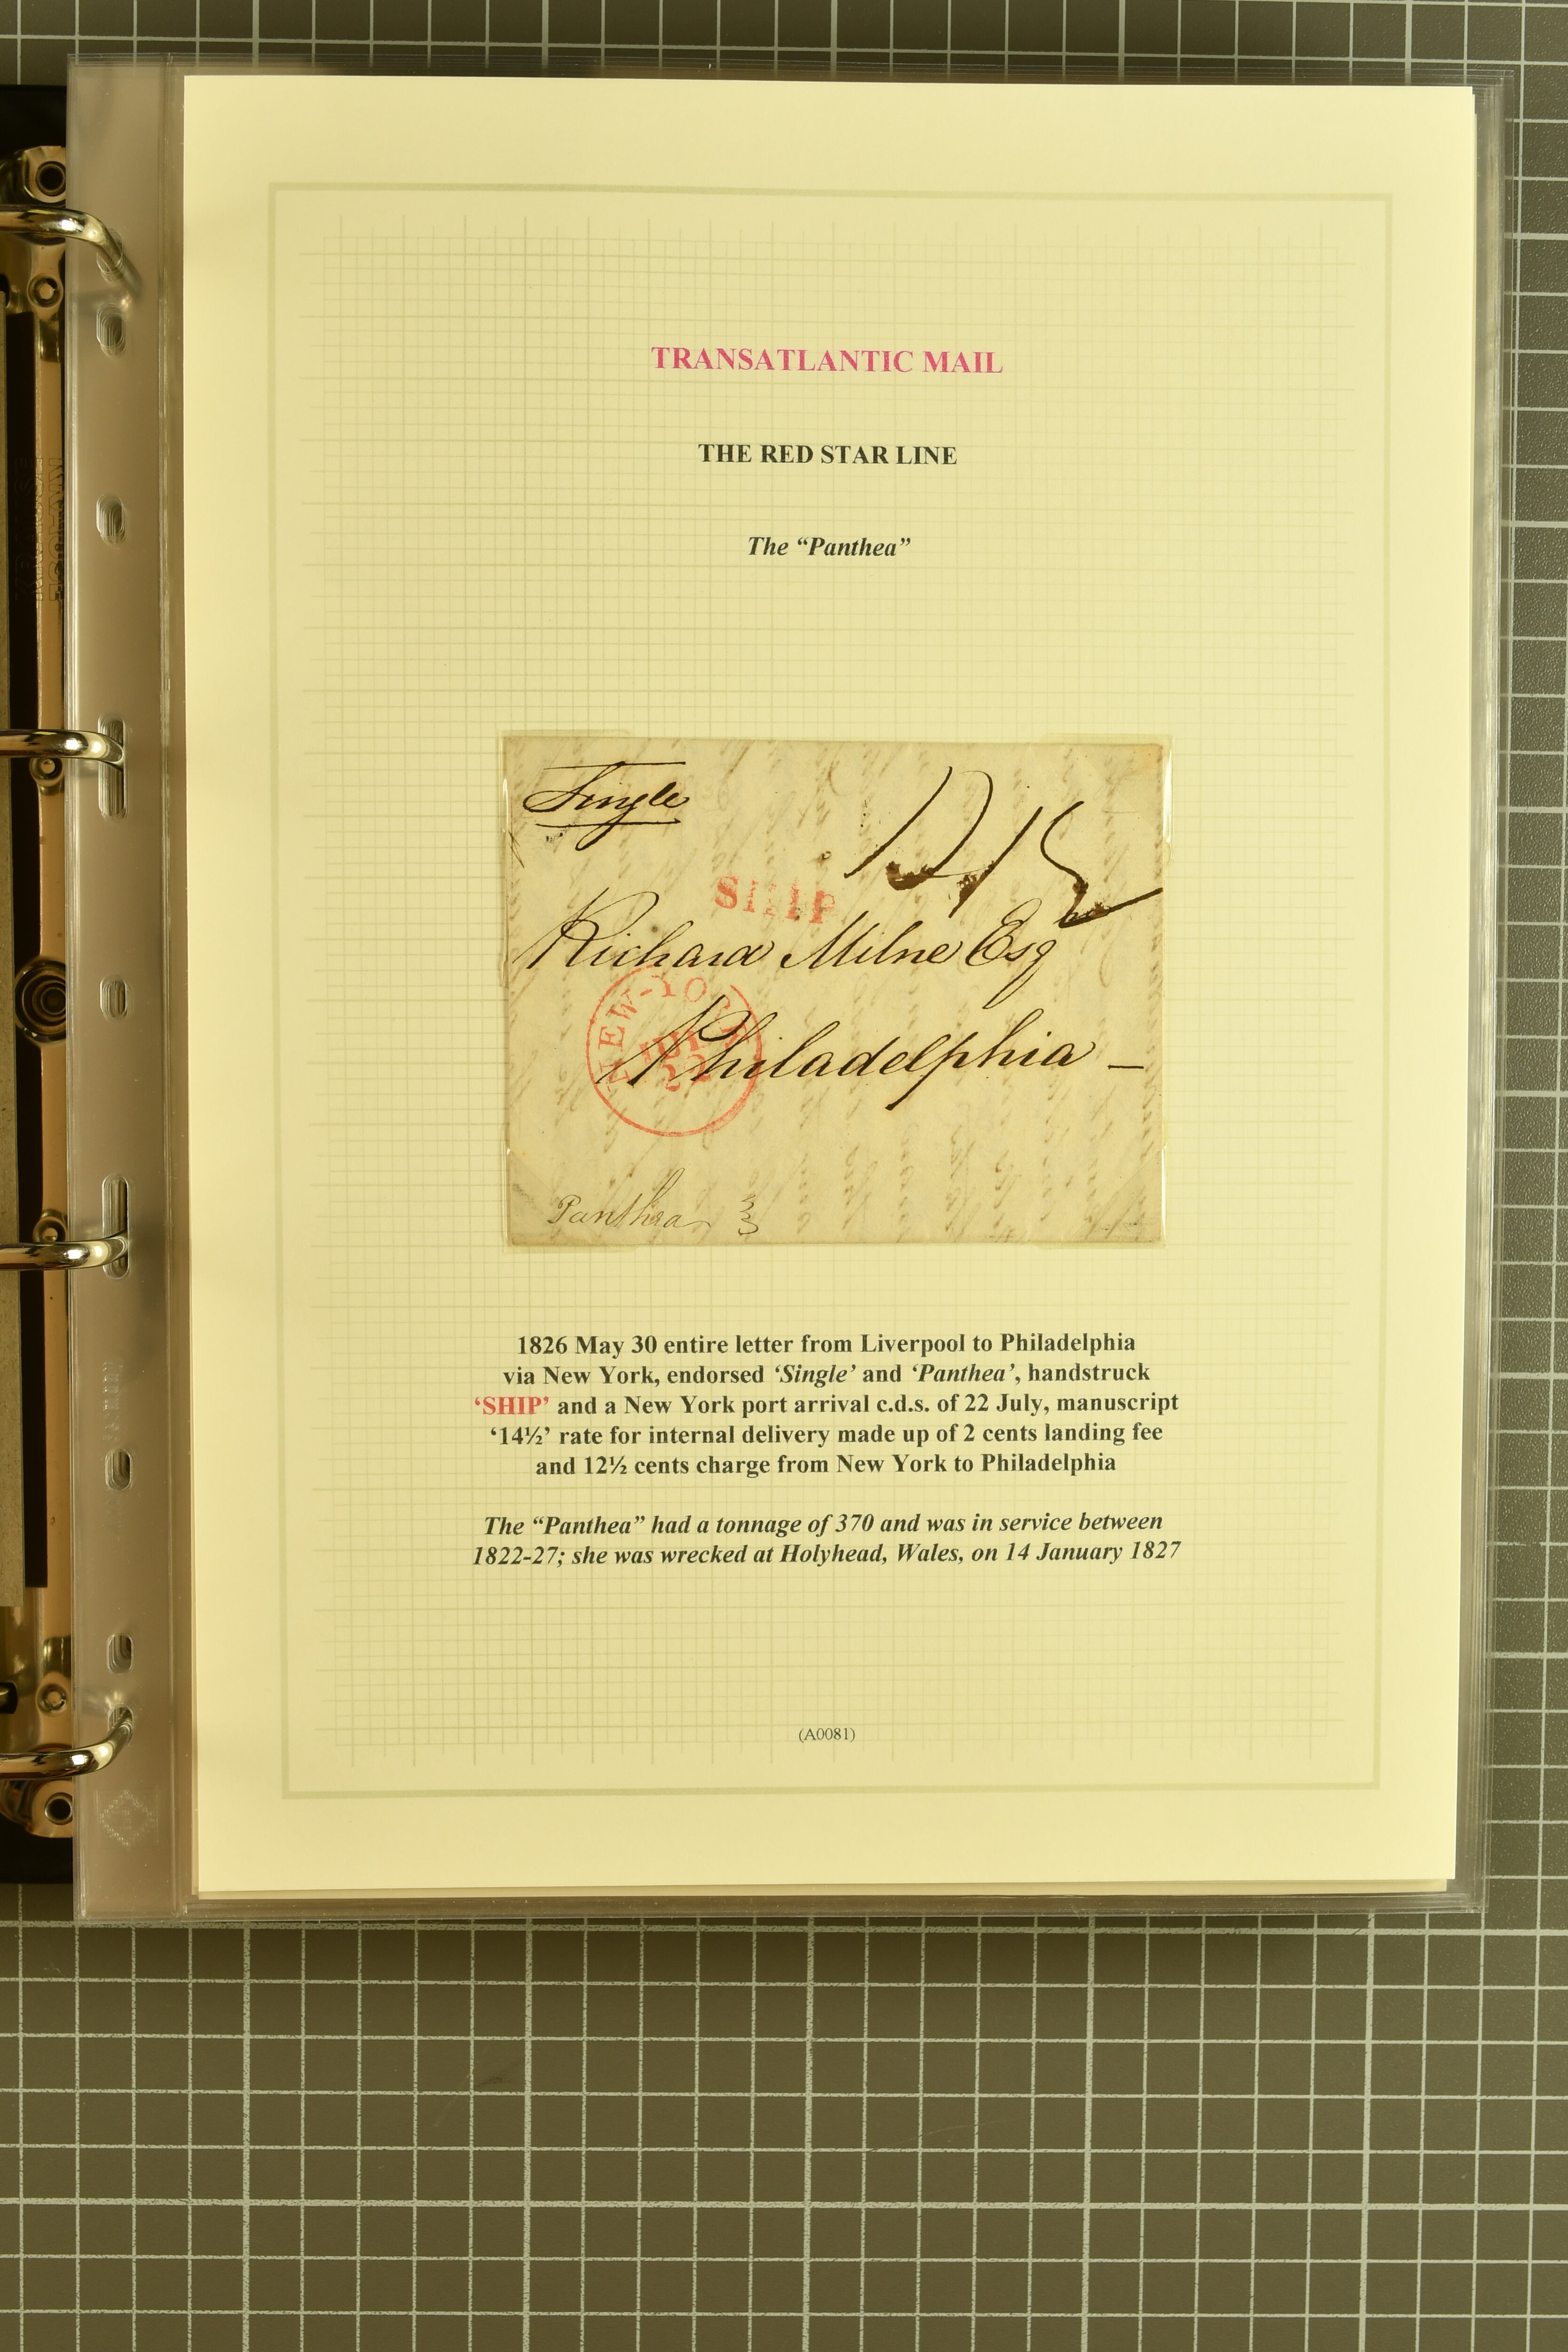 TRANSATLANTIC MAIL
THE RED STAR LINE
The “Panthea”
Single
SHIP
Richard Milne Esq
NEW-YORK
JUL
22
Philadelphia —
Panthea
1826 May 30 entire letter from Liverpool to Philadelphia
via New York, endorsed ‘Single’ and ‘Panthea’, handstruck
‘SHIP’ and a New York port arrival c.d.s. of 22 July, manuscript
‘14½’ rate for internal delivery made up of 2 cents landing fee
and 12½ cents charge from New York to Philadelphia
The “Panthea” had a tonnage of 370 and was in service between
1822-27; she was wrecked at Holyhead, Wales, on 14 January 1827
(A0081)